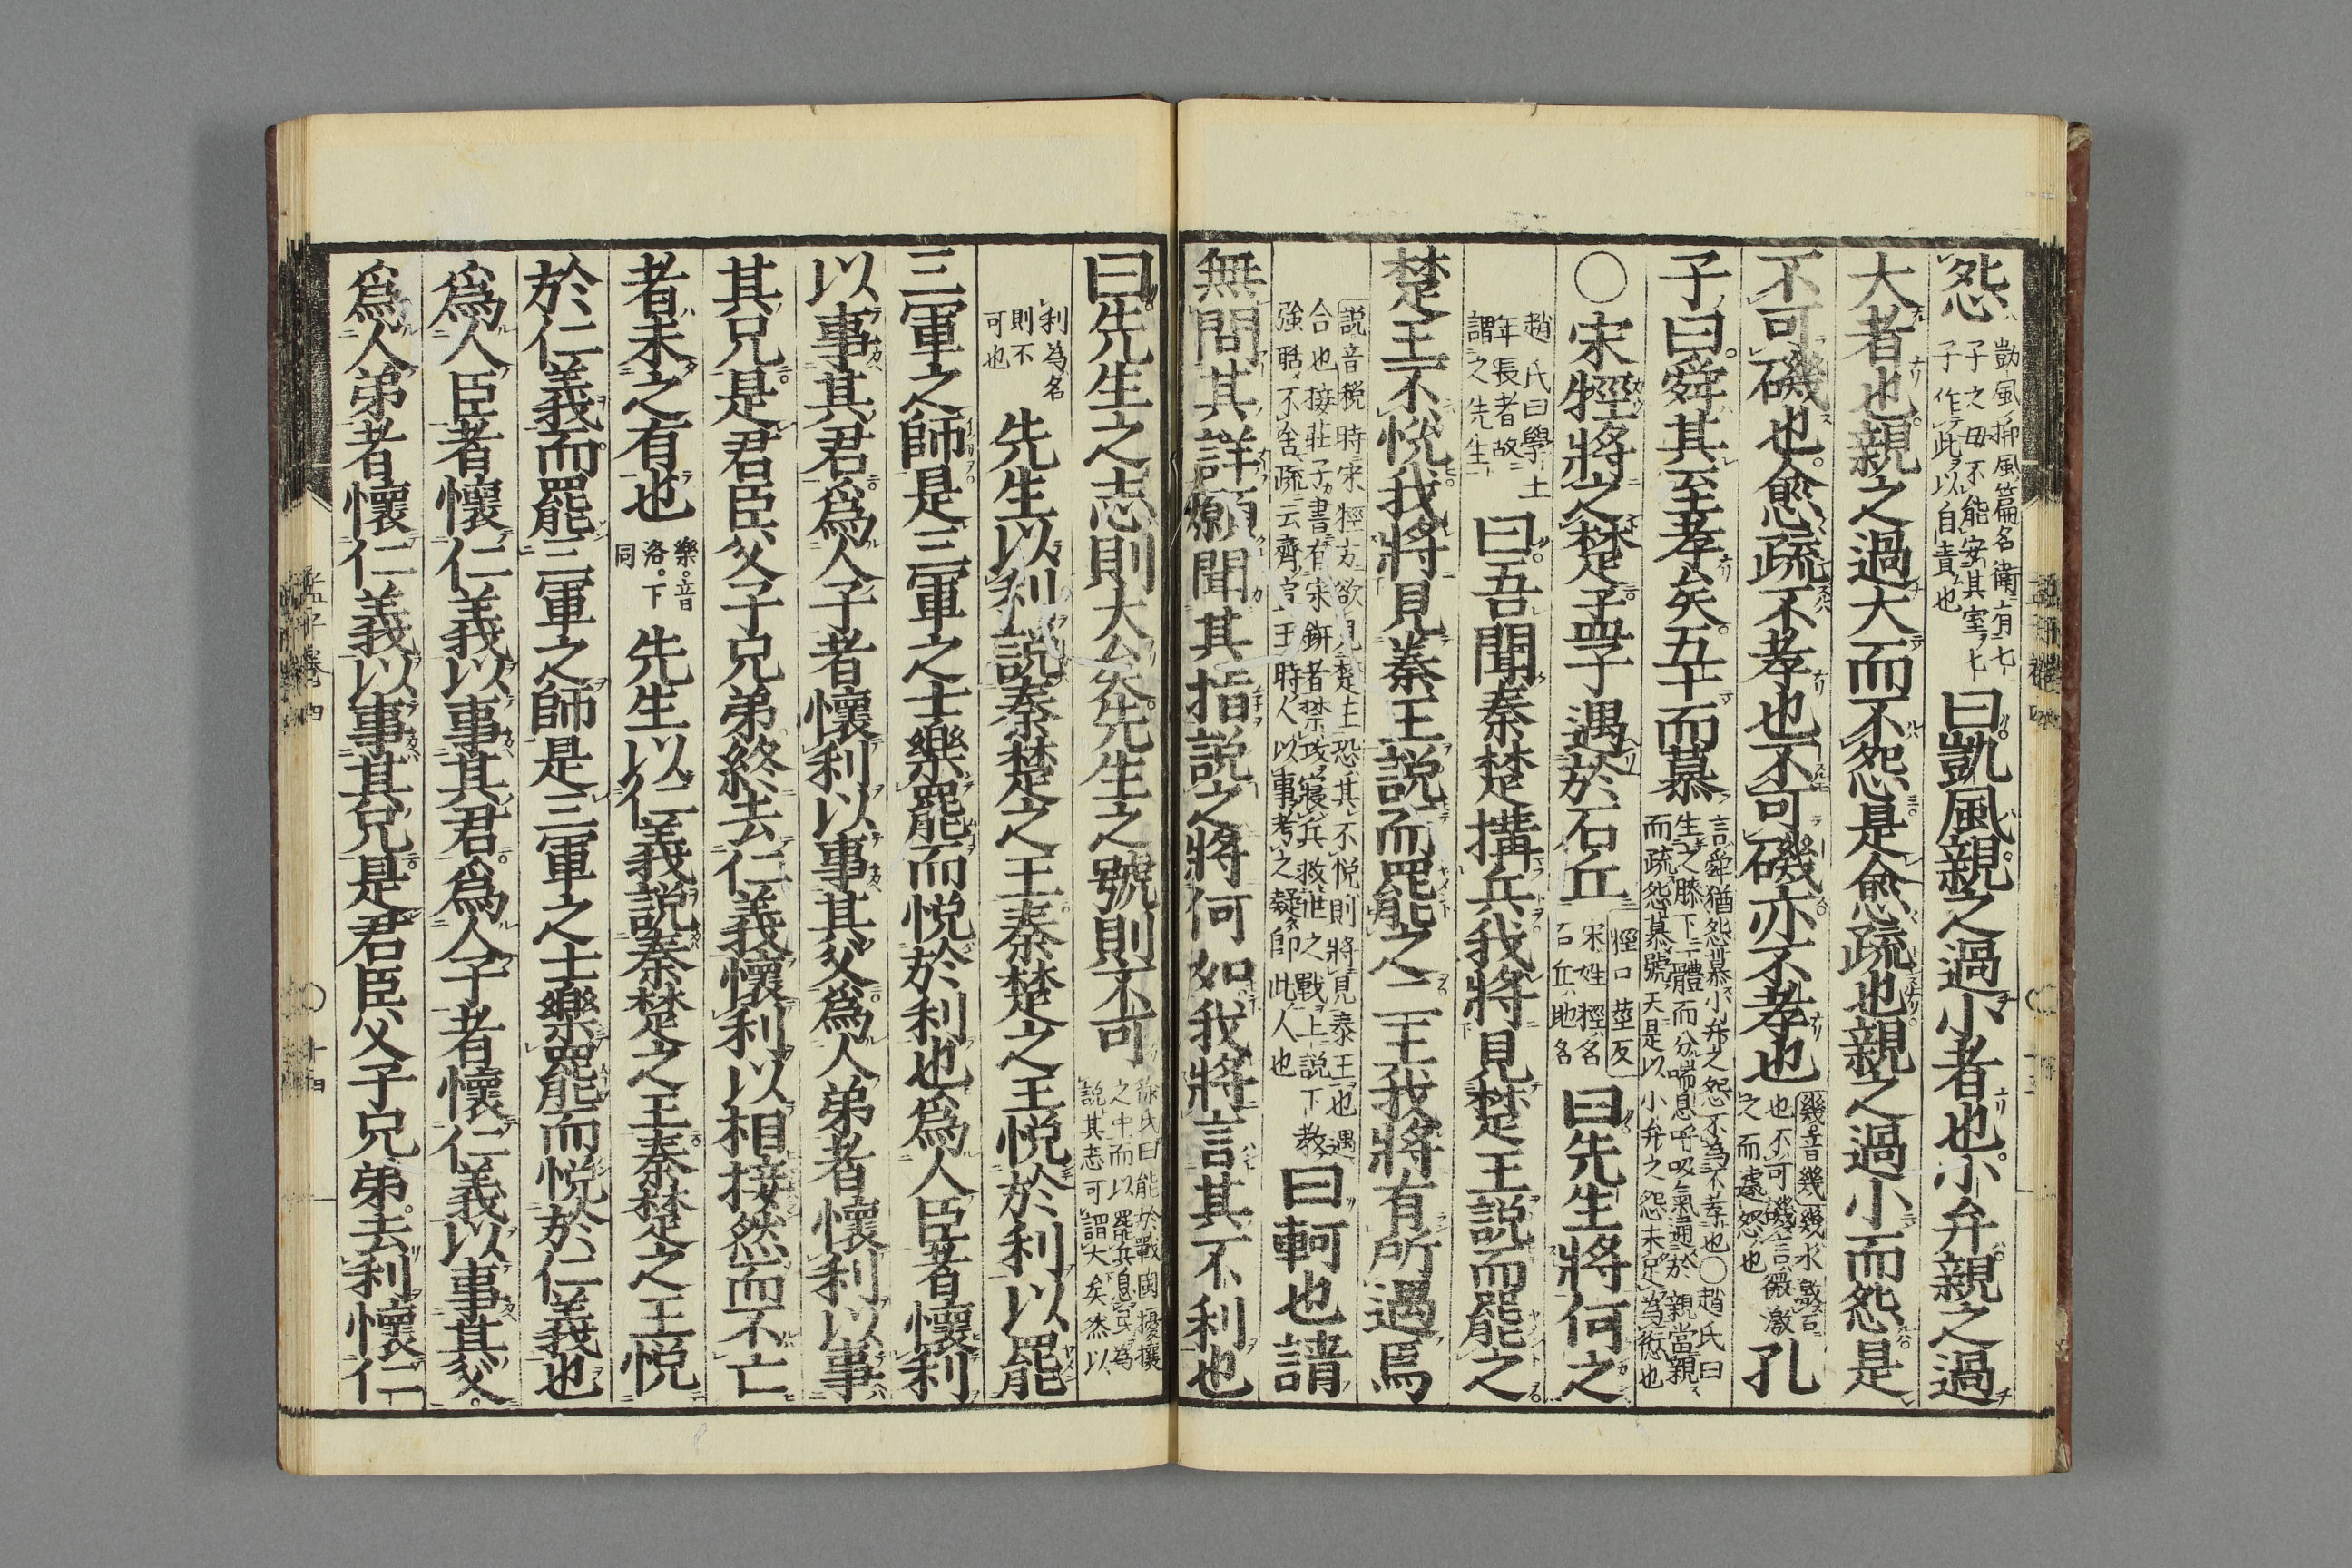 怨
凱風邶風篇名衛有七
子之母不能安其室七
子作此以自責也
曰凱風親之過小者也小弁親之過
大者也親之過大而不怨是愈疏也親之過小而怨是
不可磯也愈疏不孝也不可磯亦不孝也
磯音幾 磯水激石
也不可磯言微激
之而遽怒也
孔
子曰舜其至孝矣五十而慕
言舜猶怨慕小弁之怨不為不孝也○趙氏曰
生之膝下一體而分喘息呼吸氣通於親當親
而疏怨慕號天是以小弁之怨未足為愆也
○宋牼將之楚孟子遇於石丘
牼口莖反
宋姓牼名
石丘地名
曰先生將何之
趙氏曰學士
年長者故
謂之先生
曰吾聞秦楚搆兵我將見楚王説而罷之
楚王不悦我將見秦王説而罷之二王我將有所遇焉
説音税 時宋牼方欲見楚王恐其不悦則將見秦王也遇
合也按莊子書有宋鈃者禁攻寢兵救世之戰上説下教
強聒不舍疏云齊宣王時人以事考之疑即此人也
曰軻也請
無問其詳願聞其指説之將何如我將言其不利也
曰先生之志則大矣先生之號則不可
徐氏曰能於戰國擾攘
之中而以罷兵息民為
説其志可謂大矣然以
利為名
則不
可也
先生以利説秦楚之王秦楚之王悦於利以罷
三軍之師是三軍之士樂罷而悦於利也爲人臣者懷利
以事其君爲人子者懷利以事其父爲人弟者懷利以事
其兄是君臣父子兄弟終去仁義懷利以相接然而不亡
者未之有也
樂音
洛下
同
先生以仁義説秦楚之王秦楚之王悦
於仁義而罷三軍之師是三軍之士樂罷而悦於仁義也
爲人臣者懷仁義以事其君爲人子者懷仁義以事其父
爲人弟者懷仁義以事其兄是君臣父子兄弟去利懷仁
孟子卷四
十四